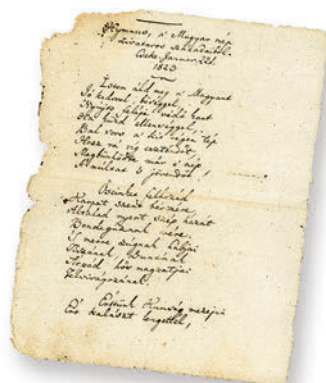 Hymnus, a' Magyar nép
zivataros századaiból.
Cseke Januar. 22d.
1823
Isten áldd meg a' Magyart
Jó kedvvel, bőséggel,
Nyújts feléje védő kart
Ha küzd ellenséggel;
Bal sors a' kit régen tép
Hozz rá víg esztendőt
Megbűnhődte már e' nép
A' multat 's jövendőt!
Őseinket felhozád
Kárpát szent bérczére
Általad nyert szép hazát
Bendegúznak vére.
'S merre zúgnak habjai
Tiszának, Dunának
Árpád hős magzatjai
Felvirágozának.
Értünk Kunság mezejin
Ért kalászt lengettél,